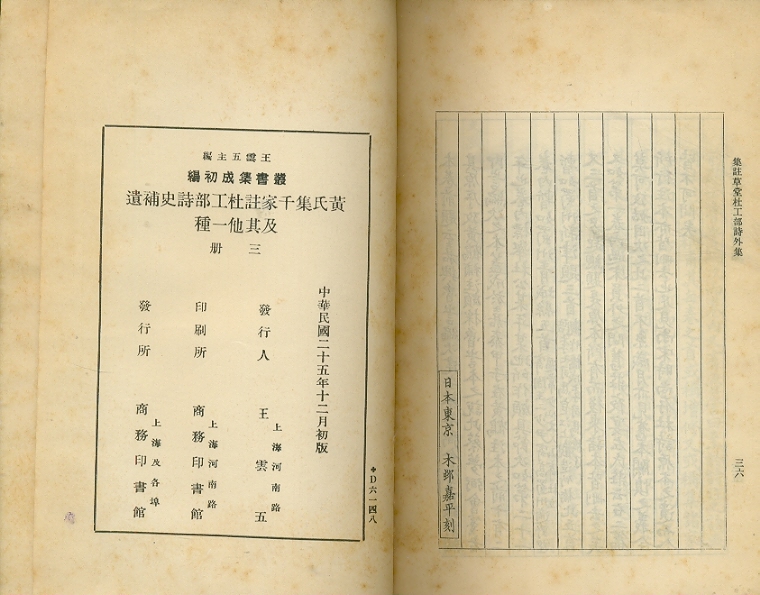 集註草堂杜工部詩外集
三六
日本東京 木邨嘉平刻
王雲五主編
叢書集成初編
黃氏集千家註杜工部詩史補遺
及其他一種
三册
中華民國二十五年十二月初版
發行人 王雲五
上海河南路
印刷所 商務印書館
上海河南路
發行所 商務印書館
上海及各埠
*D六一四八